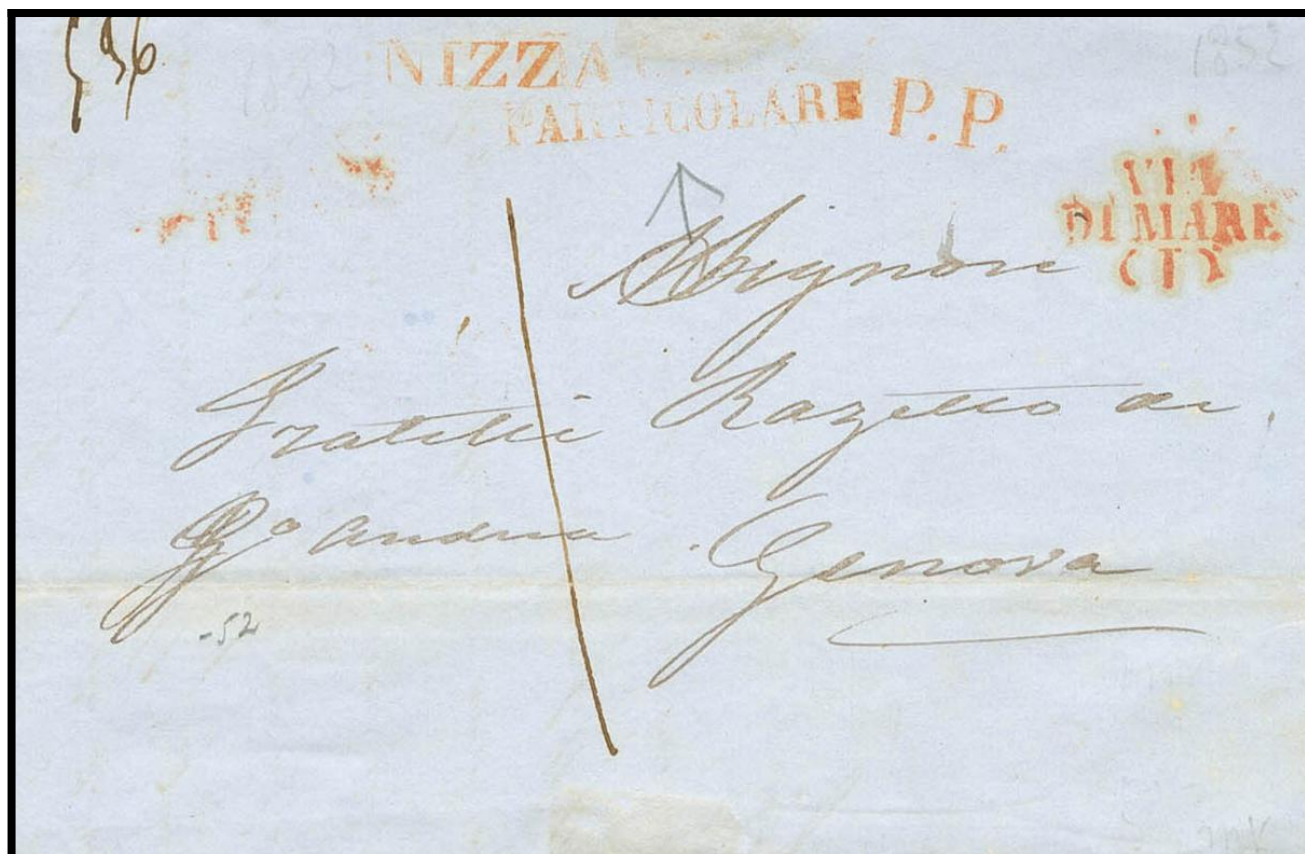 1852
NIZZA
PARTICOLARE P.P.
VIA
DI MARE
(I)
Signori
Fratelli Razetto di
Andrea Genova
-52